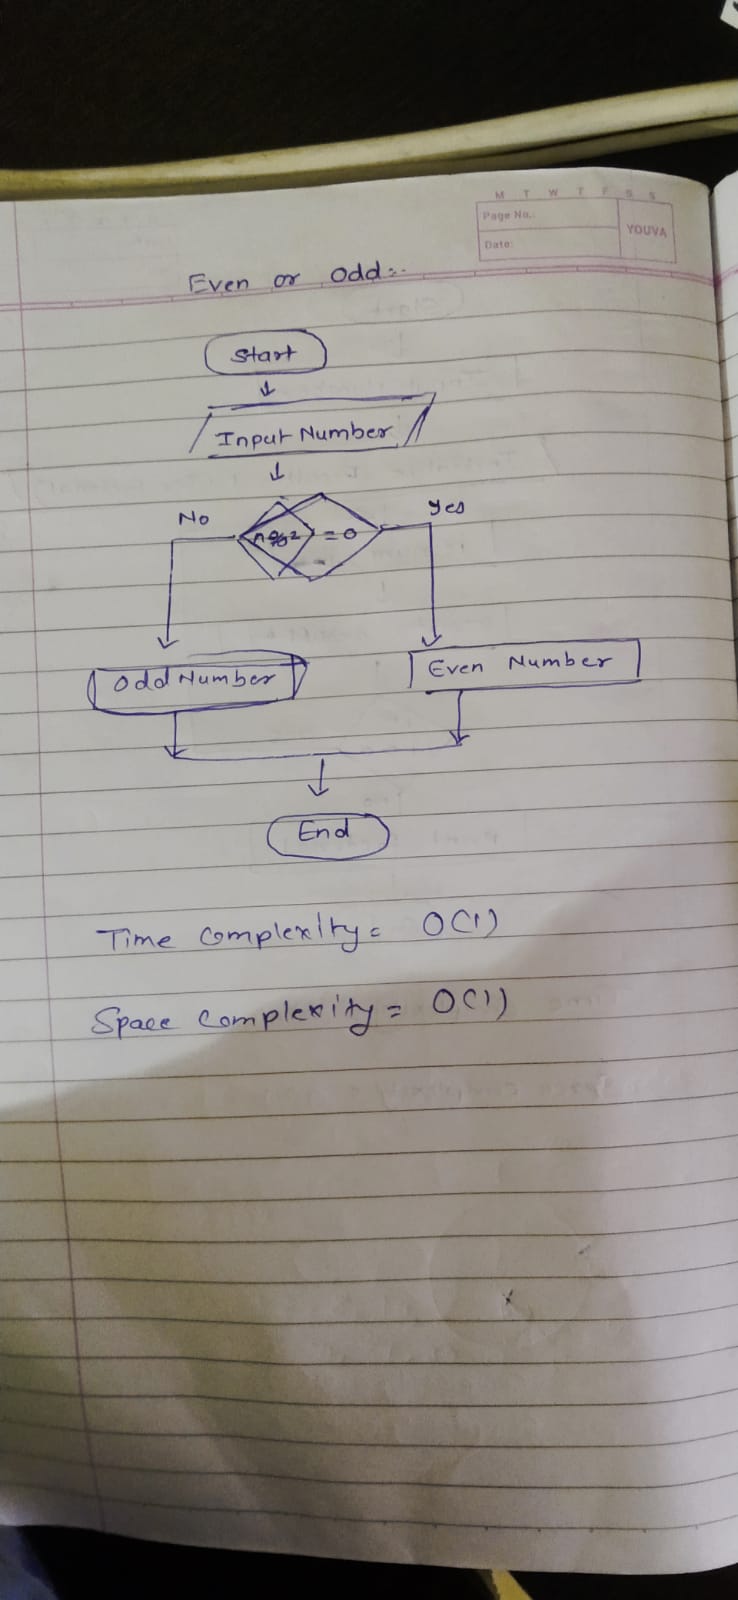 M T W T F S S
Page No.:
YOUVA
Date:
Even or Odd:-
Start
Input Number
No
n%2 = 0
Yes
Odd Number
Even Number
End
Time Complexity = O(1)
Space Complexity = O(1)